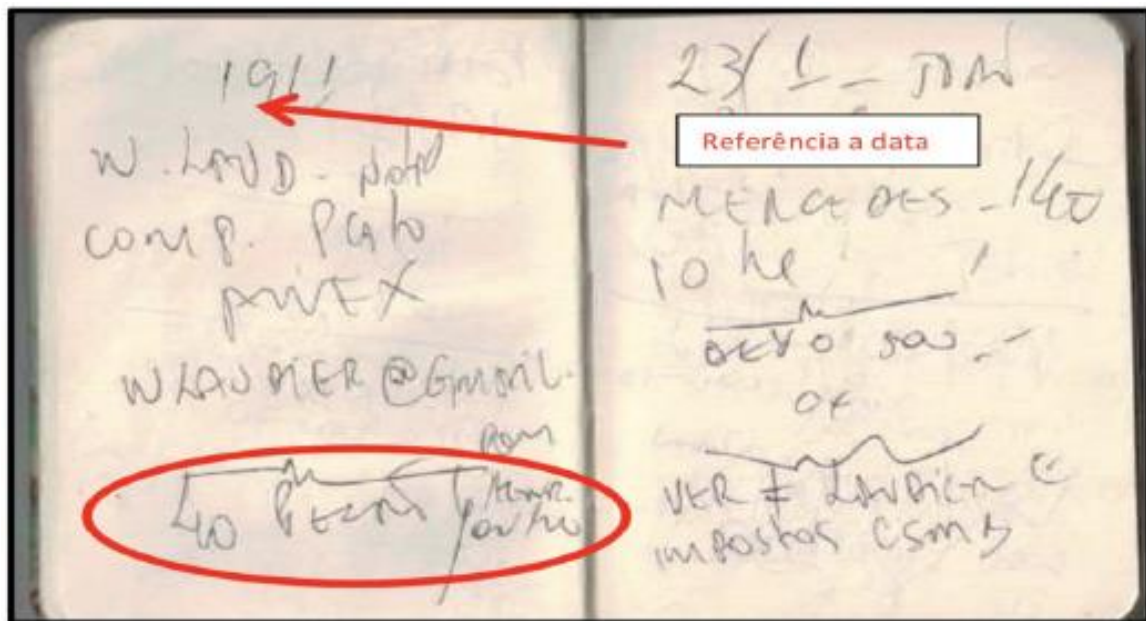 19/1
W. LAUD - NOTA
COMP. PGTO
ANEX
WLAUDIER@GMAIL.
COM
40
OUTRO
23/1 -
Referência a data
MERCEDES - 140
10
DEVO 500,-
OK
VER ≠ LAUDIER E
IMPOSTOS CSMB